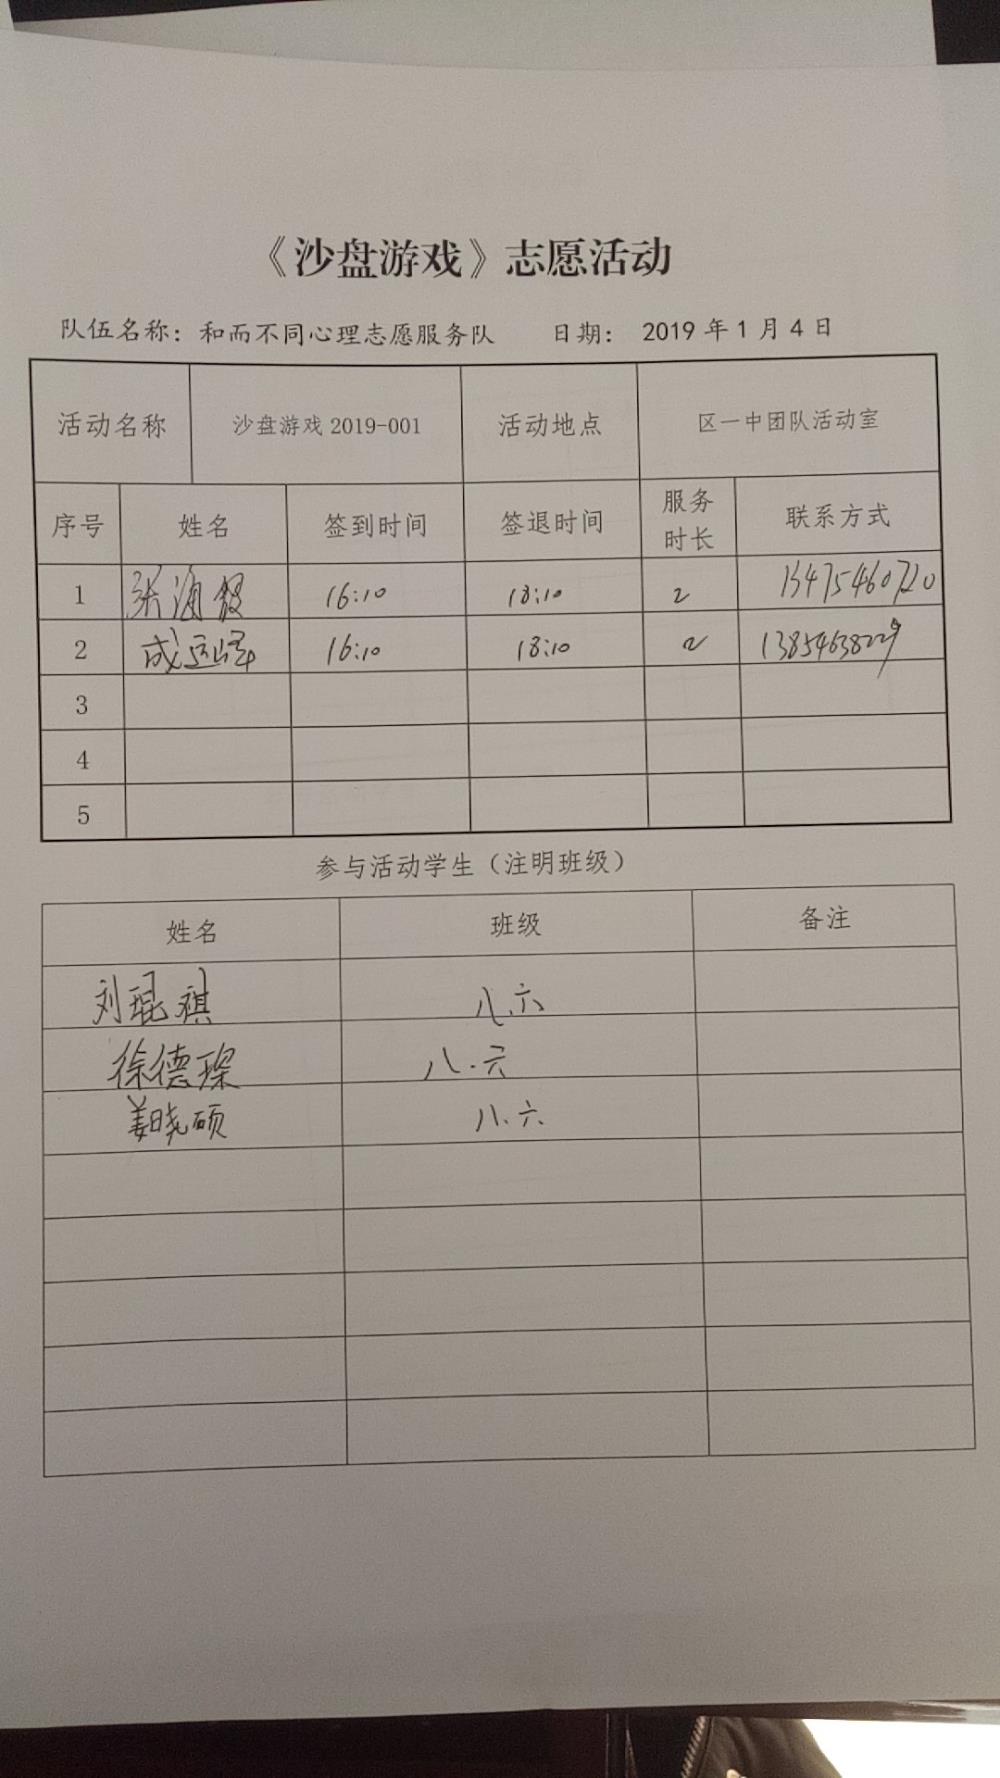 《沙盘游戏》志愿活动
队伍名称：和而不同心理志愿服务队 日期： 2019 年 1 月 4 日
活动名称 沙盘游戏 2019-001 活动地点 区一中团队活动室
序号 姓名 签到时间 签退时间 服务时长 联系方式
1 张海 16:10 18:10 2 13475460720
2 成远峰 16:10 18:10 2
3
4
5
参与活动学生（注明班级）
姓名 班级 备注
刘琨祺 八.六
徐德琛 八.六
姜晓硕 八.六